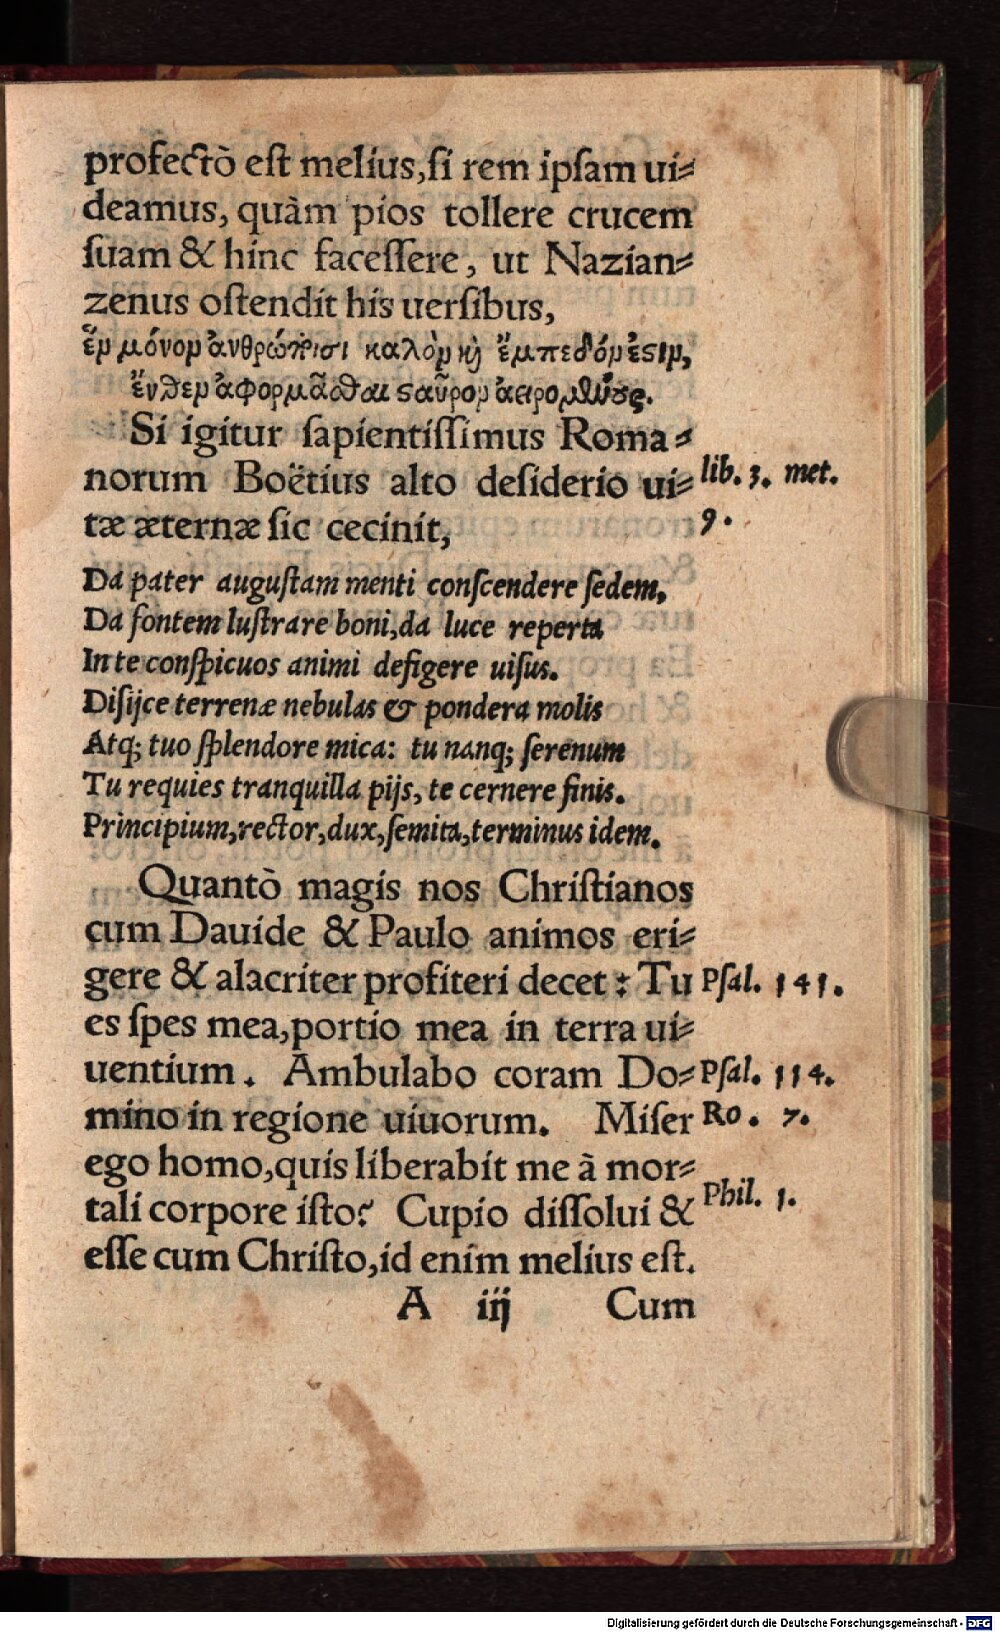 profectò est melius, si rem ipsam ui⸗
deamus, quàm pios tollere crucem
suam & hinc facessere, ut Nazian⸗
zenus ostendit his uersibus,
ἓν μόνον ἀνθρώποισι καλὸν καὶ ἔμπεδόν ἐστιν,
ἔνθεν ἀφορμᾶσθαι σταῦρον ἀειρομένους.
Si igitur sapientissimus Roma⸗
norum Boëtius alto desiderio ui⸗ lib. 3. met.
tæ æternæ sic cecinit, 9.
Da pater augustam menti conscendere sedem,
Da fontem lustrare boni, da luce reperta
In te conspicuos animi defigere uisus.
Disijce terrenæ nebulas & pondera molis
Atq; tuo splendore mica: tu nanq; serenum
Tu requies tranquilla pijs, te cernere finis.
Principium, rector, dux, semita, terminus idem.
Quantò magis nos Christianos
cum Dauide & Paulo animos eri⸗
gere & alacriter profiteri decet: Tu Psal. 141.
es spes mea, portio mea in terra ui⸗
uentium. Ambulabo coram Do⸗ Psal. 114.
mino in regione uiuorum. Miser Ro. 7.
ego homo, quis liberabit me à mor⸗
tali corpore isto? Cupio dissolui & Phil. 1.
esse cum Christo, id enim melius est.
A iij Cum
Digitalisierung gefördert durch die Deutsche Forschungsgemeinschaft - DFG